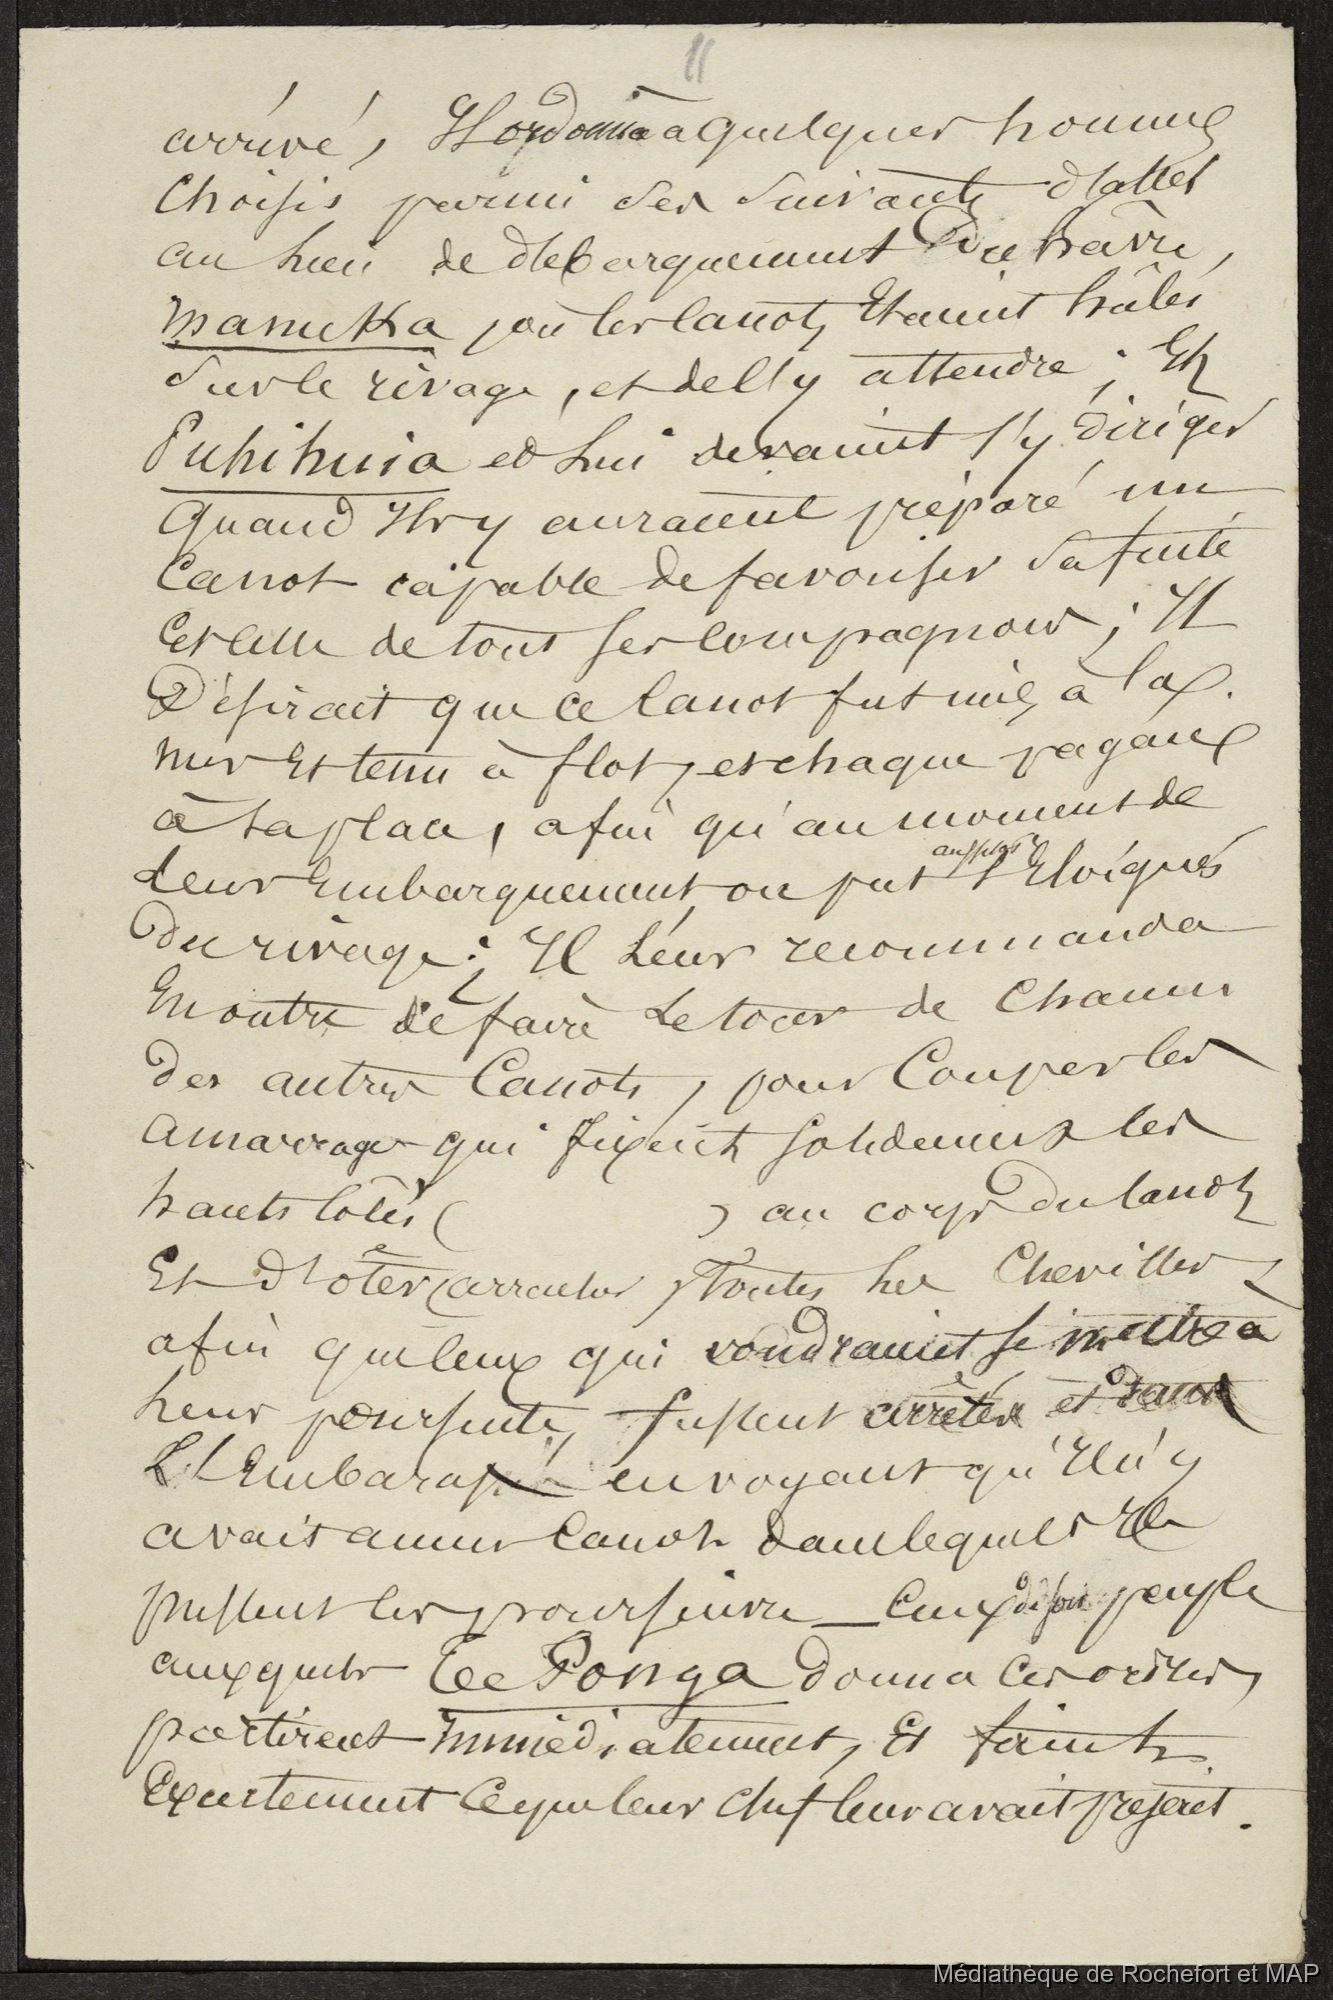 11
arrivé, Il ordonna à quelques hommes
choisis parmi ses suivants d'aller
au lieu de debarquement du havre,
Manuka, où les canots étaient hâlés
sur le rivage, et de l'y attendre ; Et
Puhihuia et lui devaient s'y diriger
quand Ils y auraient préparé un
canot capable de favoriser sa fuite
et celle de tous ses compagnons ; Il
Désirait que ce canot fut mis à la
mer et tenu à flot, et chaque pagaie
à sa place, afin qu'au moment de
leur Embarquement, on put aussitot s'Eloigner
du rivage ; Il leur recommanda
En outre de faire le tour de chacun
des autres canots, pour couper les
amarrages qui fixent solidement les
hauts côtés ( ) au corps du canot
Et d'oter (arracher) toutes les chevilles
afin que ceux qui voudraient se mettre à
leur poursuite, fussent arrêtés et dans
l'Embaras en voyant qu'Il n'y
avait aucun canot dans lequel Ils
pussent les poursuivre _ Ceux de son peuple
auxquels Te Ponga donna ces ordres,
partirent immédiatement, Et firent
Exactement ce que leur chef leur avait prescrit.
Médiathèque de Rochefort et MAP